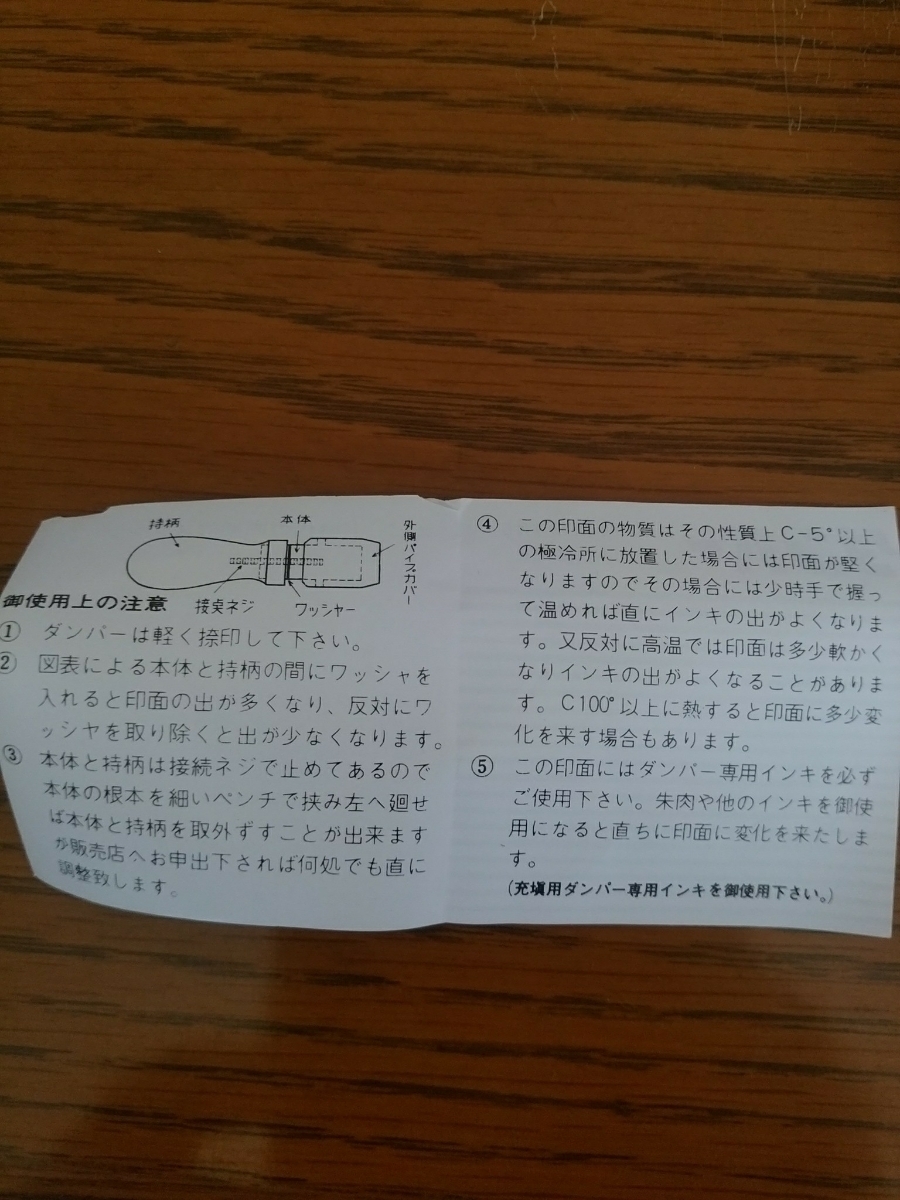 持柄
本体
外側パイプカバー
接続ネジ
ワッシャー
御使用上の注意
① ダンパーは軽く捺印して下さい。
② 図表による本体と持柄の間にワッシャを
入れると印面の出が多くなり、反対にワ
ッシヤを取り除くと出が少なくなります。
③ 本体と持柄は接続ネジで止めてあるので
本体の根本を細いペンチで挟み左へ廻せ
ば本体と持柄を取外ずすことが出来ます
が販売店へお申出下されば何処でも直に
調整致します。
④ この印面の物質はその性質上C-5°以上
の極冷所に放置した場合には印面が堅く
なりますのでその場合には少時手で握っ
て温めれば直にインキの出がよくなりま
す。又反対に高温では印面は多少軟かく
なりインキの出がよくなることがありま
す。C100°以上に熱すると印面に多少変
化を来す場合もあります。
⑤ この印面にはダンパー専用インキを必ず
ご使用下さい。朱肉や他のインキを御使
用になると直ちに印面に変化を来たしま
す。
(充塡用ダンパー専用インキを御使用下さい。)